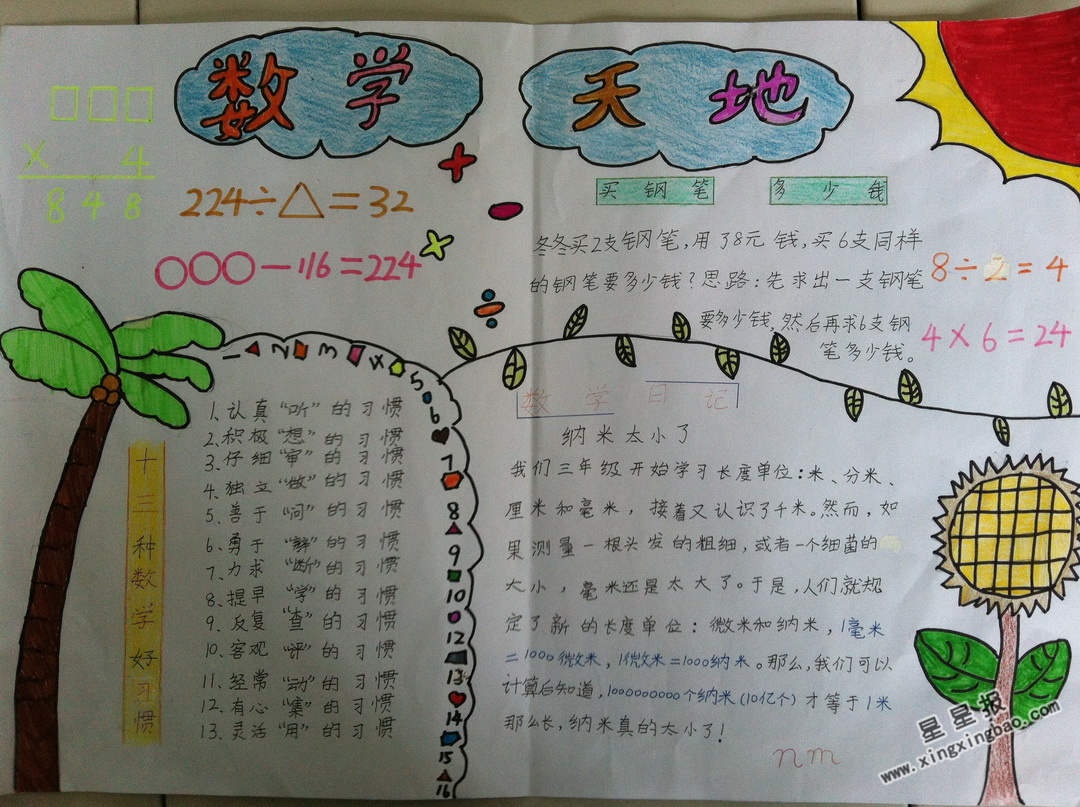 数学
天地
□□□
× 4
848
224÷△=32
○○○-116=224
买钢笔 多少钱
冬冬买2支钢笔,用了8元钱,买6支同样
的钢笔要多少钱?思路:先求出一支钢笔
要多少钱,然后再求6支钢
笔多少钱。
8÷2=4
4×6=24
1 2 3 4 5 6 7 8 9 10 12 13 14 15 16
十三种数学好习惯
1、认真“听”的习惯
2、积极“想”的习惯
3、仔细“审”的习惯
4、独立“做”的习惯
5、善于“问”的习惯
6、勇于“辩”的习惯
7、力求“断”的习惯
8、提早“学”的习惯
9、反复“查”的习惯
10、客观“评”的习惯
11、经常“动”的习惯
12、有心“集”的习惯
13、灵活“用”的习惯
数学日记
纳米太小了
我们三年级开始学习长度单位:米、分米、
厘米和毫米,接着又认识了千米。然而,如
果测量一根头发的粗细,或者一个细菌的
大小,毫米还是太大了。于是,人们就规
定了新的长度单位:微米和纳米,1毫米
=1000微米,1微米=1000纳米。那么,我们可以
计算后知道,1000000000个纳米(10亿个)才等于1米
那么长,纳米真的太小了!
nm
星星报
www.xingxingbao.com